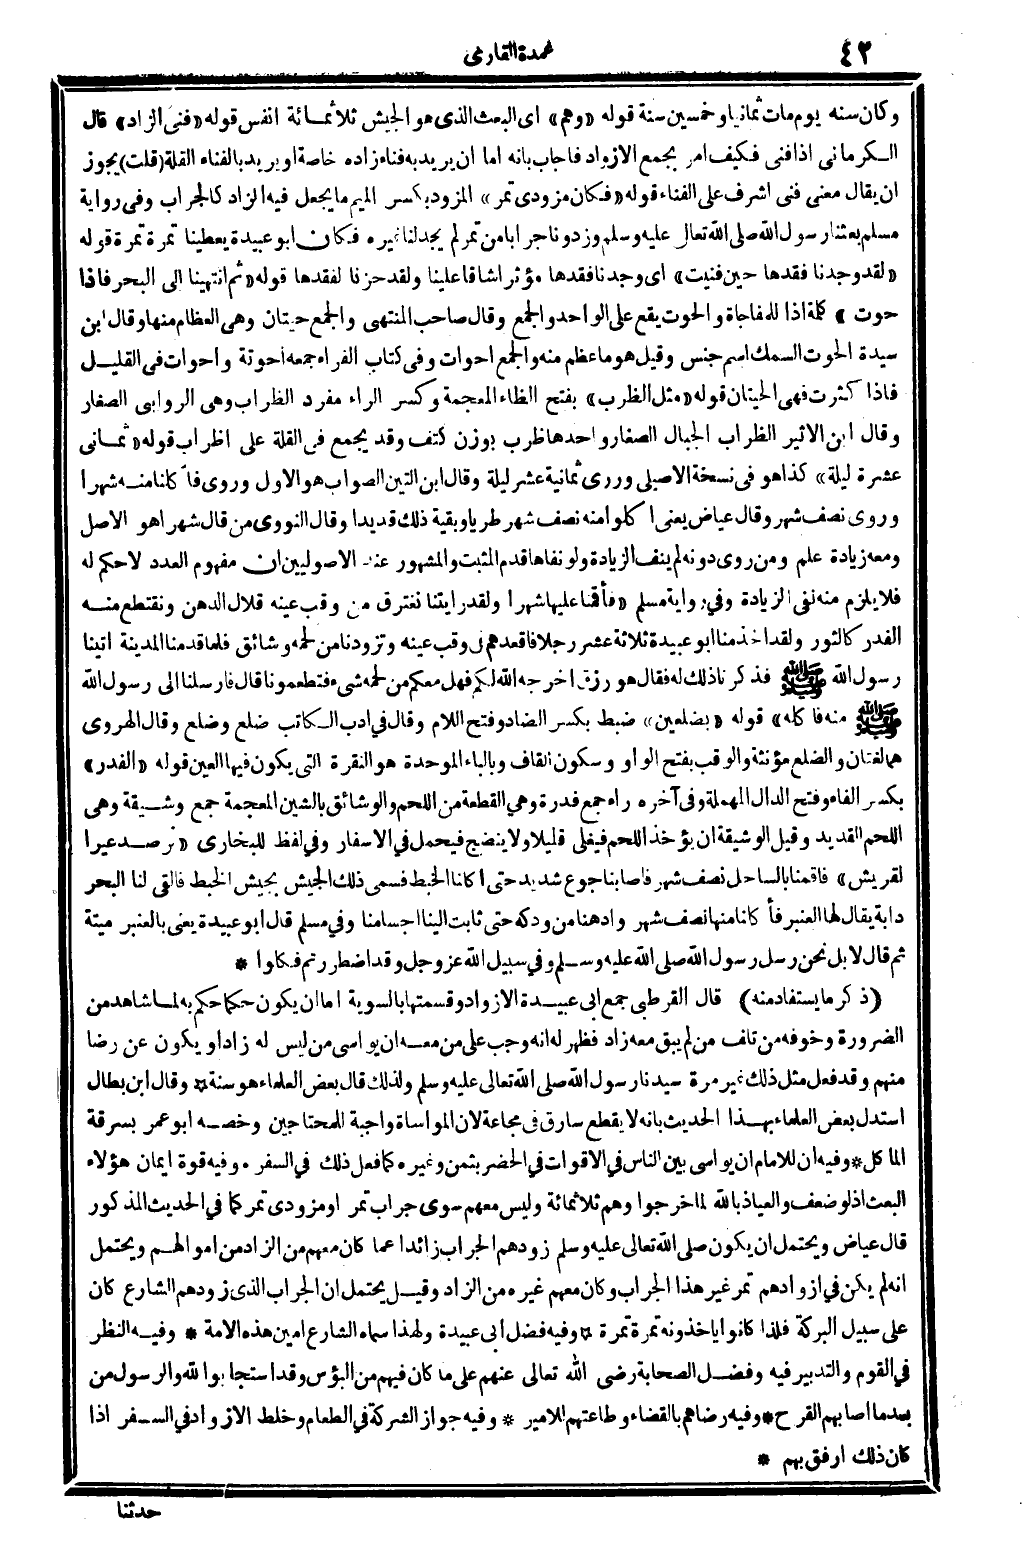 ٤٢
عمدة القارى
وكان سنه يوم مات ثمانيا وخمسين سنة قوله «وهم» اى البعث الذى هو الجيش ثلاثمائة انفس قوله «ففنى الزاد» قال
الكرمانى اذا فنى فكيف امر بجمع الازواد فاجاب بانه اما ان يريد به فناء زاده خاصة او يريد بالفناء القلة (قلت) يجوز
ان يقال معنى فنى اشرف على الفناء قوله «فكان مزودى تمر» المزود بكسر الميم ما يجعل فيه الزاد كالجراب وفى رواية
مسلم بعثنا رسول الله صلى الله تعالى عليه وسلم وزودنا جرابا من تمر لم يجد لنا غيره فكان ابو عبيدة يعطينا تمرة تمرة قوله
«لقد وجدنا فقدها حين فنيت» اى وجدنا فقدها مؤثرا شاقا علينا ولقد حزنا لفقدها قوله «ثم انتهينا الى البحر فاذا
حوت» كلمة اذا للمفاجاة والحوت يقع على الواحد والجمع وقال صاحب المنتهى والجمع حيتان وهى العظام منها وقال ابن
سيدة الحوت السمك اسم جنس وقيل هو ما عظم منه والجمع احوات وفى كتاب الفراء جمعه احوتة واحوات فى القليل
فاذا كثرت فهى الحيتان قوله «مثل الظرب» بفتح الظاء المعجمة وكسر الراء مفرد الظراب وهى الروابى الصغار
وقال ابن الاثير الظراب الجبال الصغار واحدها ظرب بوزن كتف وقد يجمع فى القلة على اظراب قوله «ثمانى
عشرة ليلة» كذا هو فى نسخة الاصيلى وروى ثمانية عشر ليلة وقال ابن التين الصواب هو الاول وروى فأكلنا منه شهرا
وروى نصف شهر وقال عياض يعنى اكلوا منه نصف شهر طريا وبقية ذلك قديدا وقال النووى من قال شهرا هو الاصل
ومعه زيادة علم ومن روى دونه لم ينف الزيادة ولو نفاها قدم المثبت والمشهور عند الاصوليين ان مفهوم العدد لا حكم له
فلا يلزم منه نفى الزيادة وفى رواية مسلم «فأقمنا عليها شهرا ولقد رايتنا نغترف من وقب عينه قلال الدهن ونقتطع منه
الفدر كالثور ولقد اخذ منا ابو عبيدة ثلاثة عشر رجلا فاقعدهم فى وقب عينه وتزودنا من لحمه وشائق فلما قدمنا المدينة اتينا
رسول الله ﷺ فذكرنا ذلك له فقال هو رزق اخرجه الله لكم فهل معكم من لحمه شىء فتطعمونا قال فارسلنا الى رسول الله
ﷺ منه فاكله» قوله «بضلعين» ضبط بكسر الضاد وفتح اللام وقال فى ادب الكاتب ضلع وضلع وقال الهروى
هما لغتان والضلع مؤنثة والوقب بفتح الواو وسكون القاف وبالباء الموحدة هو النقرة التى يكون فيها العين قوله «الفدر»
بكسر الفاء وفتح الدال المهملة وفى آخره راء جمع فدرة وهى القطعة من اللحم والوشائق بالشين المعجمة جمع وشيقة وهى
اللحم القديد وقيل الوشيقة ان يؤخذ اللحم فيغلى قليلا ولا ينضج فيحمل فى الاسفار وفى لفظ للبخارى «نرصد عيرا
لقريش» فاقمنا بالساحل نصف شهر فاصابنا جوع شديد حتى اكلنا الخبط فسمى ذلك الجيش بجيش الخبط فالقى لنا البحر
دابة يقال لها العنبر فأكلنا منها نصف شهر وادهنا من ودكه حتى ثابت الينا اجسامنا وفى مسلم قال ابو عبيدة يعنى بالعنبر ميتة
ثم قال لا بل نحن رسل رسول الله صلى الله عليه وسلم وفى سبيل الله عز وجل وقد اضطررتم فكلوا *
(ذكر ما يستفاد منه) قال القرطبى جمع ابى عبيدة الازواد وقسمتها بالسوية اما ان يكون حكما حكم به لما شاهد من
الضرورة وخوفه من تلف من لم يبق معه زاد فظهر له انه وجب على من معه ان يواسى من ليس له زاد او يكون عن رضا
منهم وقد فعل مثل ذلك غير مرة سيدنا رسول الله صلى الله تعالى عليه وسلم ولذلك قال بعض العلماء هو سنة * وقال ابن بطال
استدل بعض العلماء بهذا الحديث بانه لا يقطع سارق فى مجاعة لان المواساة واجبة للمحتاجين وخصه ابو عمر بسرقة
الماكل * وفيه ان للامام ان يواسى بين الناس فى الاقوات فى الحضر بثمن وغيره كما فعل ذلك فى السفر * وفيه قوة ايمان هؤلاء
البعث اذ لو ضعف والعياذ بالله لما خرجوا وهم ثلاثمائة وليس معهم سوى جراب تمر او مزودى تمر كما فى الحديث المذكور
قال عياض ويحتمل ان يكون صلى الله تعالى عليه وسلم زودهم الجراب زائدا عما كان معهم من الزاد من اموالهم ويحتمل
انه لم يكن فى ازوادهم تمر غير هذا الجراب وكان معهم غيره من الزاد وقيل يحتمل ان الجراب الذى زودهم الشارع كان
على سبيل البركة فلذا كانوا ياخذونه تمرة تمرة * وفيه فضل ابى عبيدة ولهذا سماه الشارع امين هذه الامة * وفيه النظر
فى القوم والتدبير فيه وفضل الصحابة رضى الله تعالى عنهم على ما كان فيهم من البؤس وقد استجابوا لله والرسول من
بعد ما اصابهم القرح * وفيه رضاهم بالقضاء وطاعتهم للامير * وفيه جواز الشركة فى الطعام وخلط الازواد فى السفر اذا
كان ذلك ارفق بهم *
حدثنا